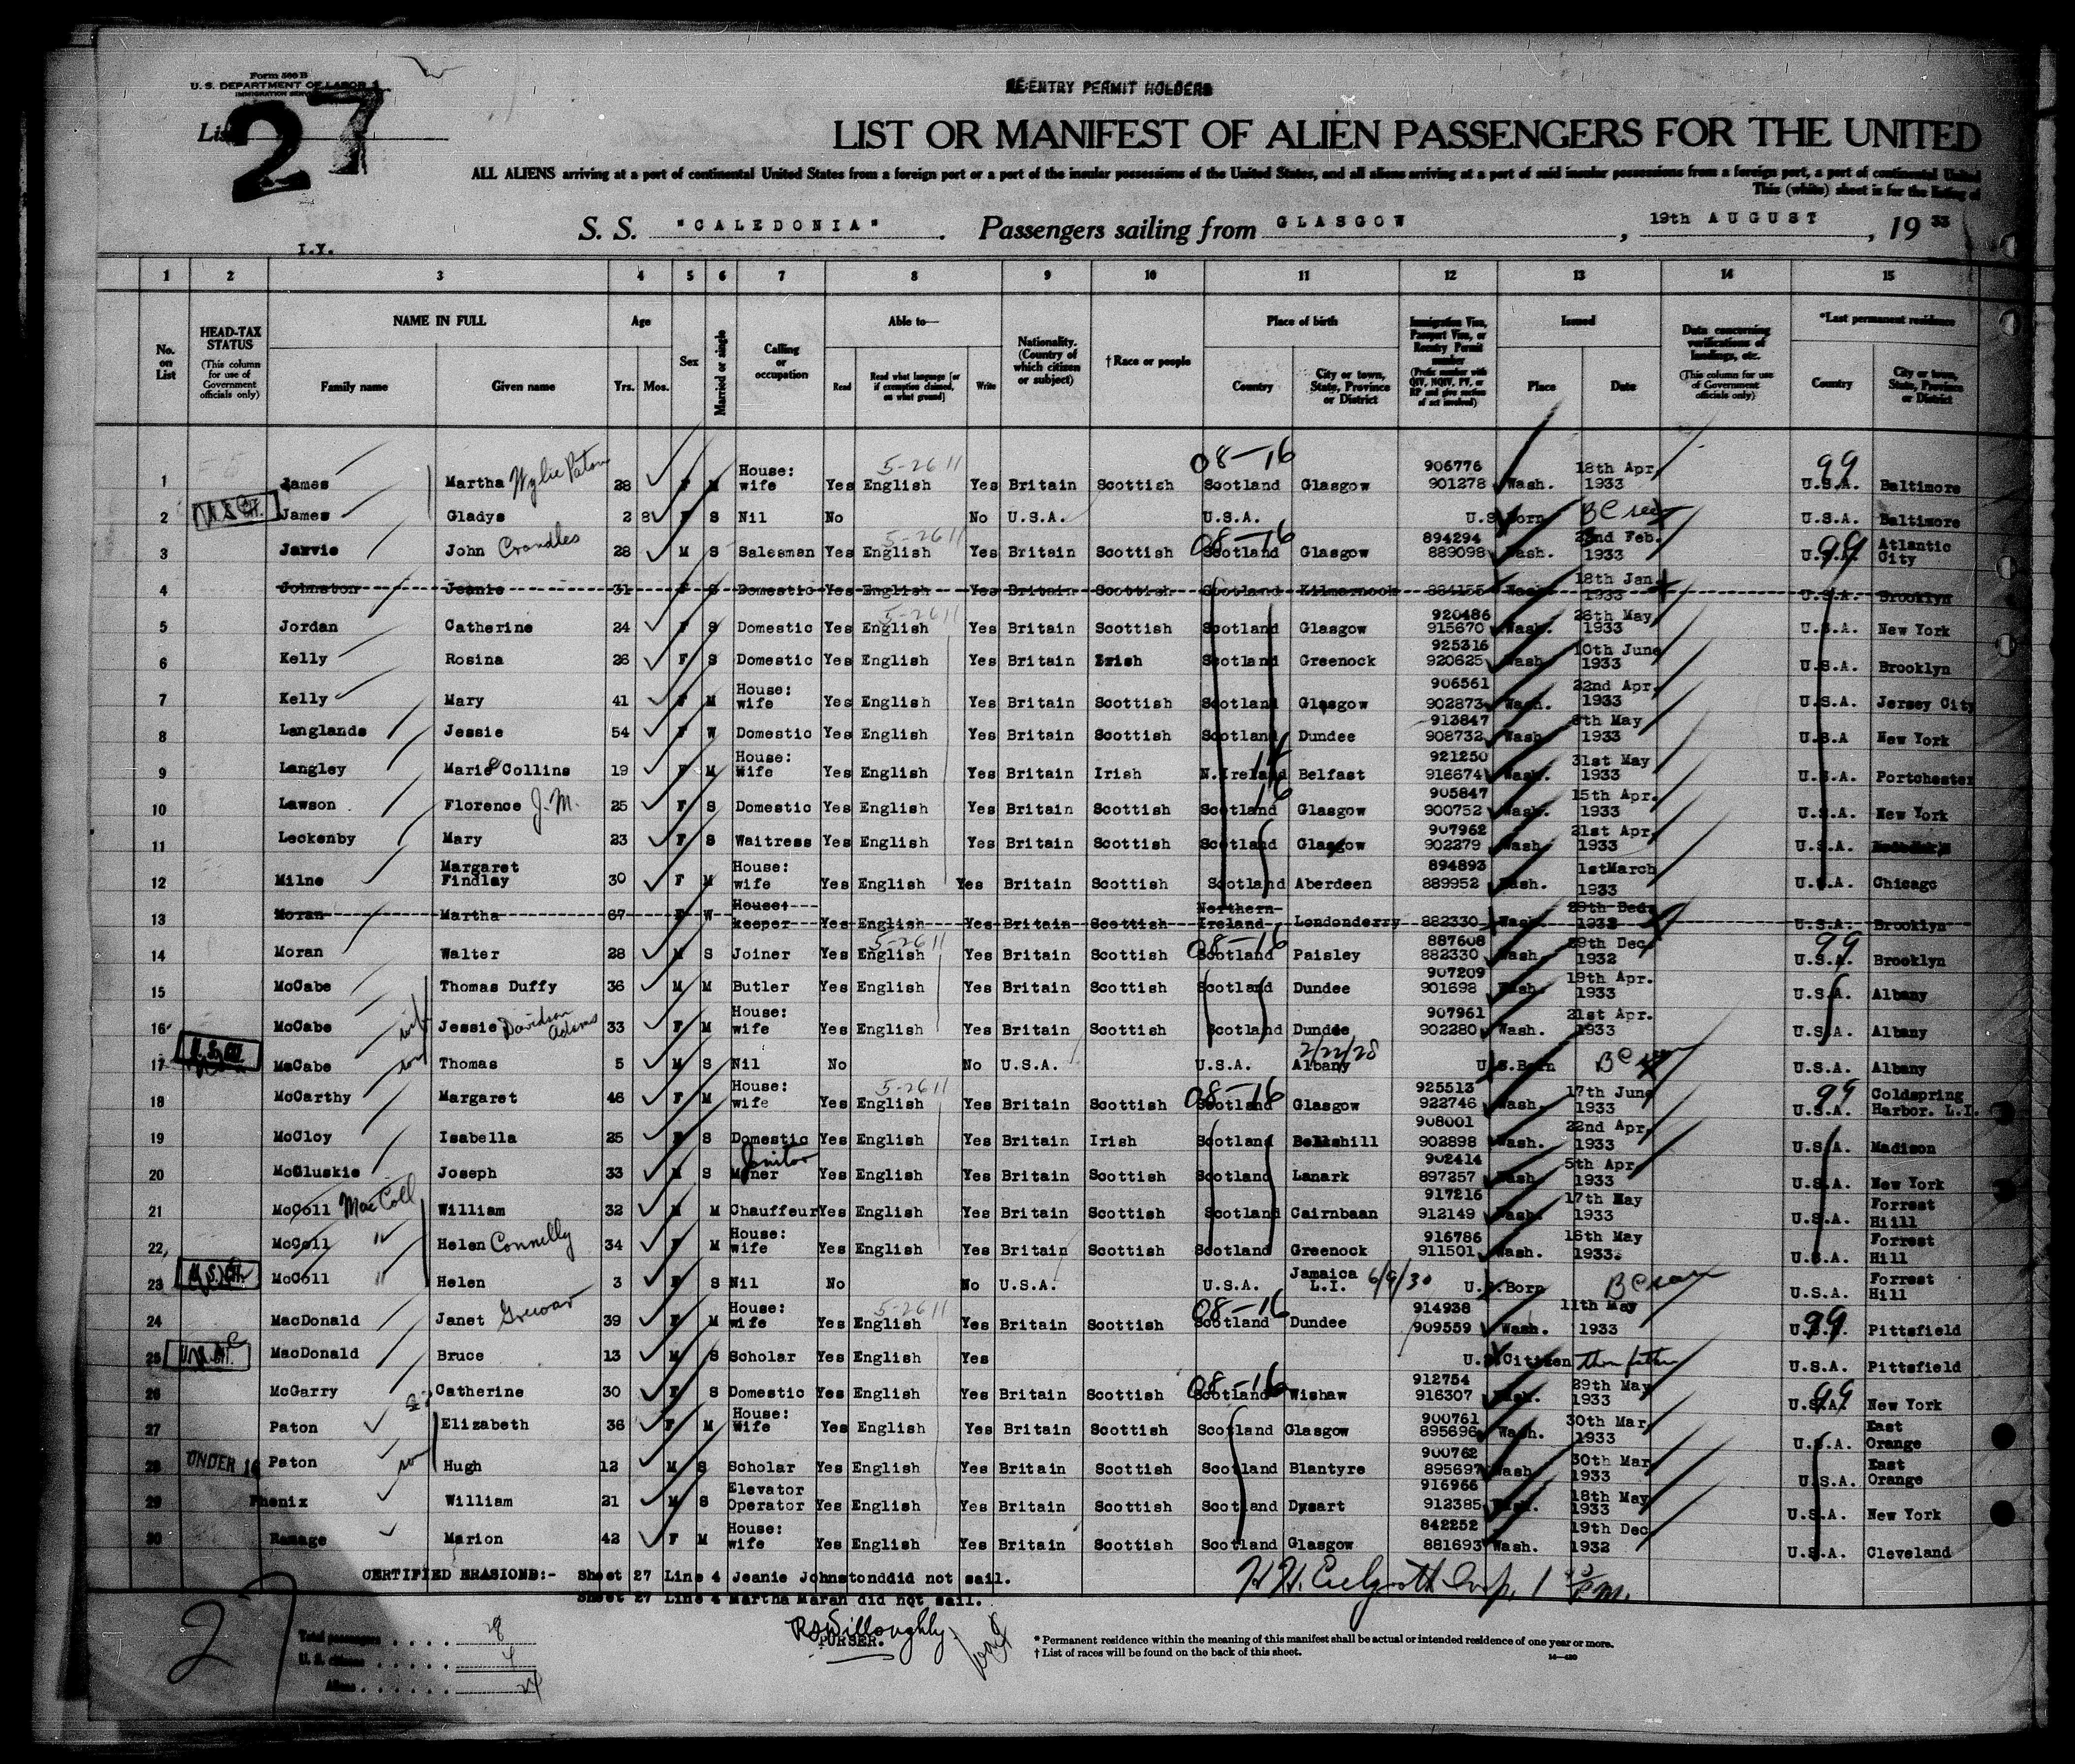 Form 500 B
U. S. DEPARTMENT OF LABOR
IMMIGRATION SERVICE
RE-ENTRY PERMIT HOLDERS
List 27
LIST OR MANIFEST OF ALIEN PASSENGERS FOR THE UNITED
ALL ALIENS arriving at a port of continental United States from a foreign port or a port of the insular possessions of the United States, and all aliens arriving at a port of said insular possessions from a foreign port, a port of continental United
This (white) sheet is for the listing of
S. S. "CALEDONIA". Passengers sailing from GLASGOW, 19th AUGUST, 1933
I.Y.
1 2 3 4 5 6 7 8 9 10 11 12 13 14 15
No. on List
HEAD-TAX STATUS (This column for use of Government officials only)
NAME IN FULL Family name Given name
Age Yrs. Mos.
Sex
Married or single
Calling or occupation
Able to— Read Read what language [or if exemption claimed, on what ground] Write
Nationality. (Country of which citizen or subject)
†Race or people
Place of birth Country City or town, State, Province or District
Immigration Visa, Passport Visa, or Reentry Permit number (Prefix number with QIV, NQIV, PV, or RP and give section of act involved)
Issued Place Date
Data concerning verifications of landings, etc. (This column for use of Government officials only)
*Last permanent residence Country City or town, State, Province or District
1 James Martha Wylie Paton 28 F M House: wife Yes English 5-2611 Yes Britain Scottish 08-16 Scotland Glasgow 906776 901278 Wash. 18th Apr. 1933 99 U.S.A. Baltimore
2 James Gladys 2 8 F S Nil No No U.S.A. U.S.A. U.S. Born BC U.S.A. Baltimore
3 Jarvie John Crandles 28 M S Salesman Yes English 5-2611 Yes Britain Scottish 08-16 Scotland Glasgow 894294 889098 Wash. 22nd Feb. 1933 99 U.S.A. Atlantic City
4 Johnston Jeanie 31 F S Domestic Yes English Yes Britain Scottish Scotland Kilmarnock 884155 Wash. 18th Jan. 1933 U.S.A. Brooklyn
5 Jordan Catherine 24 F S Domestic Yes English 5-2611 Yes Britain Scottish Scotland Glasgow 920486 915670 Wash. 26th May 1933 U.S.A. New York
6 Kelly Rosina 26 F S Domestic Yes English Yes Britain Irish Scotland Greenock 925316 920625 Wash. 10th June 1933 U.S.A. Brooklyn
7 Kelly Mary 41 F M House: wife Yes English Yes Britain Scottish Scotland Glasgow 906561 902873 Wash. 22nd Apr. 1933 U.S.A. Jersey City
8 Langlands Jessie 54 F W Domestic Yes English Yes Britain Scottish Scotland Dundee 913847 908732 Wash. 8th May 1933 U.S.A New York
9 Langley Marie Collins 19 F M House: Wife Yes English Yes Britain Irish N. Ireland Belfast 921250 916674 Wash. 31st May 1933 U.S.A. Portchester
10 Lawson Florence J. M. 25 F S Domestic Yes English Yes Britain Scottish Scotland Glasgow 905847 900752 Wash. 15th Apr. 1933 U.S.A. New York
11 Leckenby Mary 23 F S Waitress Yes English Yes Britain Scottish Scotland Glasgow 907962 902279 Wash 21st Apr. 1933 U.S.A.
12 Milne Margaret Findlay 30 F M House: wife Yes English Yes Britain Scottish Scotland Aberdeen 894893 889952 Wash. 1stMarch 1933 U.S.A. Chicago
13 Moran Martha 67 F W House: keeper Yes English Yes Britain Scottish Northern Ireland Londonderry 882330 Wash. 29th Dec. 1932 U.S.A. Brooklyn
14 Moran Walter 28 M S Joiner Yes English 5-2611 Yes Britain Scottish 08-16 Scotland Paisley 887608 882330 Wash. 29th Dec. 1932 99 U.S.A. Brooklyn
15 McCabe Thomas Duffy 36 M M Butler Yes English Yes Britain Scottish Scotland Dundee 907209 901698 Wash. 19th Apr. 1933 U.S.A. Albany
16 McCabe wife Jessie Davidson Adams 33 F M House: wife Yes English Yes Britain Scottish Scotland Dundee 907961 902280 Wash. 21st Apr. 1933 U.S.A. Albany
17 McCabe son Thomas 5 M S Nil No No U.S.A. U.S.A. 2/22/28 Albany U.S. Born BC U.S.A. Albany
18 McCarthy Margaret 46 F M House: wife Yes English 5-2611 Yes Britain Scottish 08-16 Scotland Glasgow 925513 922746 Wash. 17th June 1933 99 U.S.A. Coldspring Harbor. L.I.
19 McCloy Isabella 25 F S Domestic Yes English Yes Britain Irish Scotland Bellshill 908001 902898 Wash. 22nd Apr. 1933 U.S.A. Madison
20 McCluskie Joseph 33 M S Miner Janitor Yes English Yes Britain Scottish Scotland Lanark 902414 897257 Wash. 5th Apr. 1933 U.S.A. New York
21 McColl MacColl William 32 M M Chauffeur Yes English Yes Britain Scottish Scotland Cairnbaan 917216 912149 Wash. 17th May 1933 U.S.A. Forrest Hiill
22 McColl " Helen Connelly 34 F M House: wife Yes English Yes Britain Scottish Scotland Greenock 916786 911501 Wash. 16th May 1933. U.S.A. Forrest Hill
23 McColl " Helen 3 F S Nil No No U.S.A. U.S.A. Jamaica L.I. 6/9/30 U.S. Born BC U.S.A. Forrest Hill
24 MacDonald Janet Grewar 39 F M House: wife Yes English 5-2611 Yes Britain Scottish 08-16 Scotland Dundee 914938 909559 Wash. 11th May 1933 99 U.S.A. Pittsfield
25 MacDonald Bruce 13 M S Scholar Yes English Yes U.S. Citizen thru father U.S.A. Pittsfield
26 McGarry Catherine 30 F S Domestic Yes English Yes Britain Scottish 08-16 Scotland Wishaw 912754 916307 Wash. 29th May 1933 99 U.S.A. New York
27 Paton Elizabeth 36 F M House: Wife Yes English Yes Britain Scottish Scotland Glasgow 900761 895696 Wash. 30th Mar. 1933 U.S.A. East Orange
28 UNDER 16 Paton son Hugh 12 M S Scholar Yes English Yes Britain Scottish Scotland Blantyre 900762 895697 Wash 30th Mar. 1933 U.S.A. East Orange
29 Phenix William 21 M S Elevator Operator Yes English Yes Britain Scottish Scotland Dysart 916966 912385 Wash. 18th May 1933 U.S.A. New York
30 Ramage Marion 42 F M House: wife Yes English Yes Britain Scottish Scotland Glasgow 842252 881693 Wash. 19th Dec 1932 U.S.A. Cleveland
CERTIFIED ERASIONS:- Sheet 27 Line 4 Jeanie Johnstonddid not sail.
Sheet 27 Line 4 Martha Maran did not sail.
27
RSWilloughly
PURSER.
Total passengers 28
U. S. citizens 4
Aliens 24
* Permanent residence within the meaning of this manifest shall be actual or intended residence of one year or more.
† List of races will be found on the back of this sheet.
14—430